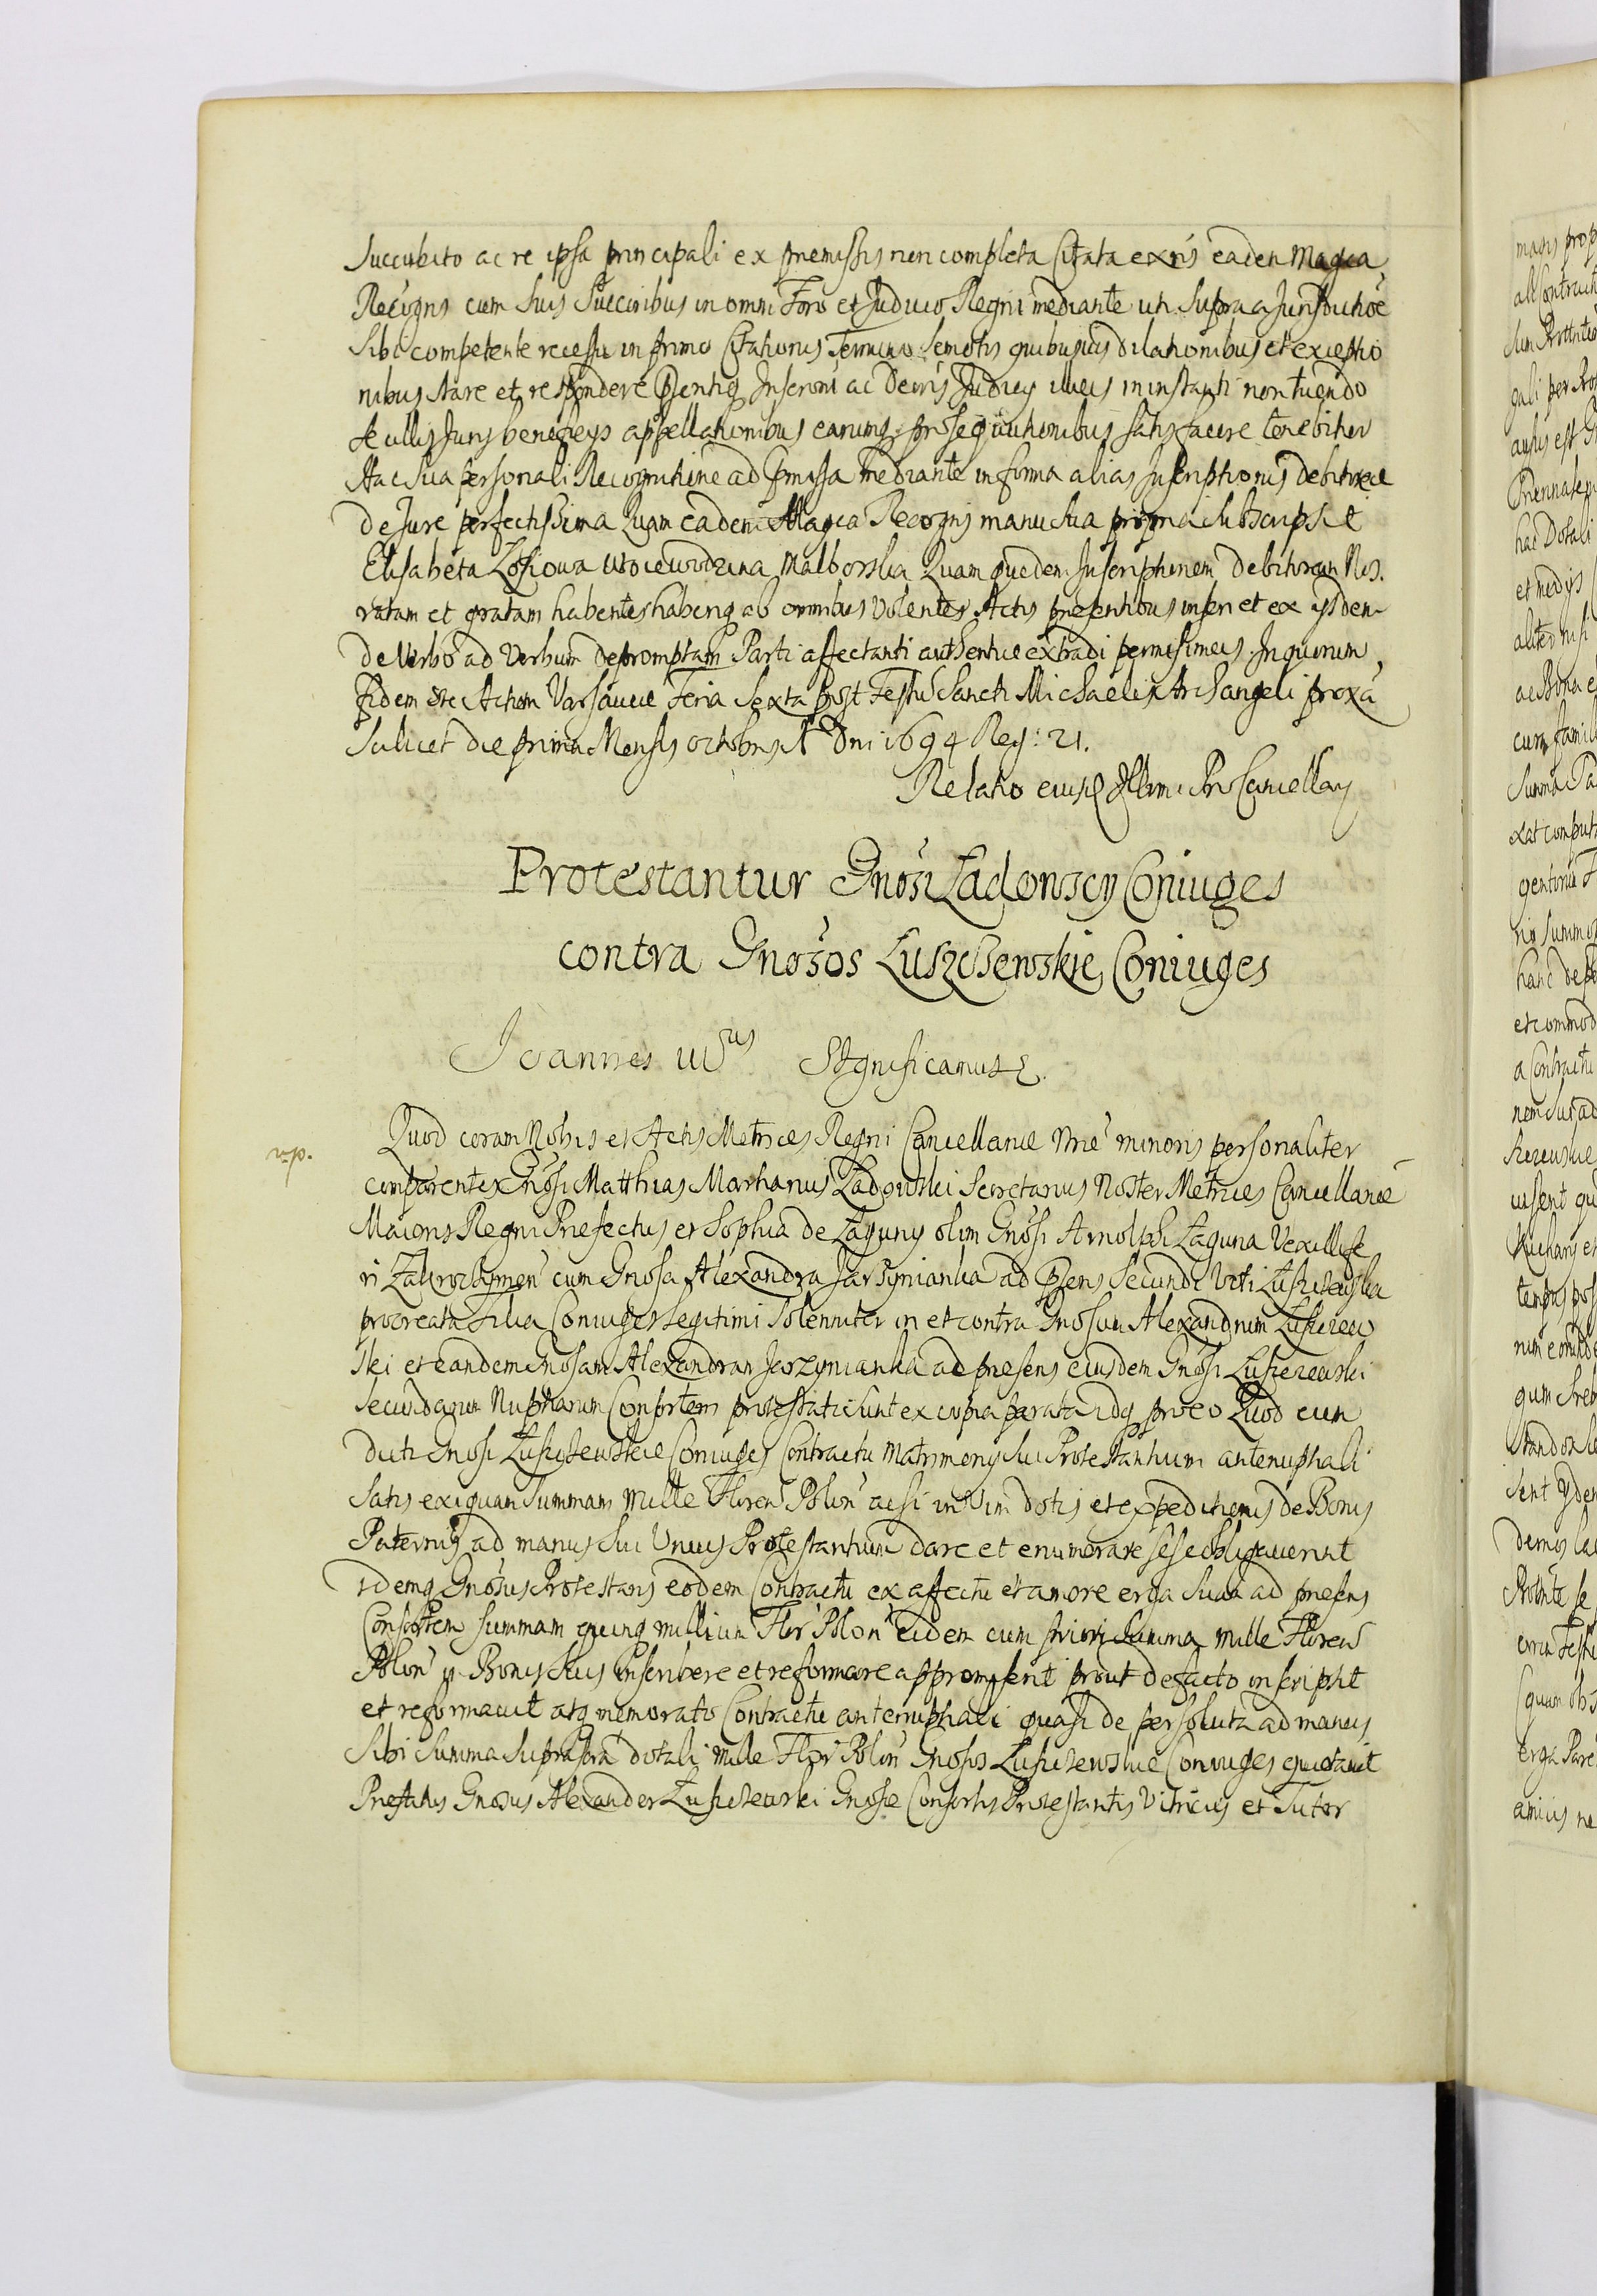 succubito ac re ipsa principali ex premissis non completa Citata ex nis eadem Magca
Recogns cum suis Succoribus in omni Foro et Judicio Regni mediante uti supra a Jurisdictioē
sibi competente recessu in primo Citationis Termino semotis quibusvis dilationibus et exceptio
nibus stare et respondere Pntiq Inscroni ac Decris Judicy illius in instanti non tuendo
se ullis Juris beneficys appellationibus earumq prosequutionibus satisfacere tenebitur
Hac sua personali Recognitione ad Pmissa mediante in forma alias Inscriptionis debitoriae
de Jure perfectissima Quam eadem Magca Recogns manu sua propria subscripsit
Elisabeta Zofiowa Woiewodzina Malborska Quam quidem Inscriptionem debitoriam Nos.
ratam et gratam habentes haberiq ab omnibus volentes Actis presentibus inseri et ex ijsdem
de Verbo ad Verbum depromptam Parti affectanti authentice extradi permisimus. In quorum
fidem etc Actum Varsaviae Feria Sexta post Festū Sancti Michaelis Archangeli proxā
scilicet die prima Mensis octobris A Dni 1694 Reg: 21.
Relatio eiusd Illmi ProCancellary
Protestantur Gnosi Ladowscy Coniuges
contra Gnosos Luszczewskie Coniuges
Joannes IIIus Significamus
Quod coram Nobis et Actis Metrices Regni Cancellariae Nrae minoris personaliter
v.p.
comparentes Gnosi Matthias Martianus Ladowski Secretarius Noster Metrices Cancellariae
Maioris Regni Prefectus et Sophia de Laguny olim Gnosi Arnolphi Laguna Vexillife
ri Zakroczymen cum Gnosa Alexandra Jarzynianka ad Psens secundi Voti Luszczewska
procreata Filia Coniuges legitimi Solenniter in et contra Gnosum Alexandrum Luszczew
ski et eandem Gnosam Alexandram Jarzynianka ad presens eiusdem Gnosi Luszczewski
secundarum Nuptiarum Consortem protestati sunt ex copia parata idq pro eo Quod cum
dicti Gnosi Luszczewskie Coniuges Contractu Matrimony sui Protestantium antenuptiali
satis exiguam Summam Mille Floren Polon acsi in Vim dotis et expeditionis de Bonis
Paternis ad manus sui Unius Protestantium dare et enumerare sese obligaverunt
idemq Gnosus Protestans eodem Contractu ex affectu et amore erga suam ad presens
Consortem Summam quinq millium Flor Polon eidem cum priori Summa Mille Floren
Polon in Bonis suis inscribere et reformare appromiserit prout de facto inscripsit
et reformavit atq memorato Contractu antenuptiali quasi de persoluta ad manus
sibi Summa suprascra dotali Mille Flor Polon Gnosos Luszczewskie Coniuges quietavit
Prefatus Gnosus Alexander Luszczewski Gnosae Consortis Protestantis Vitricus et Tutor